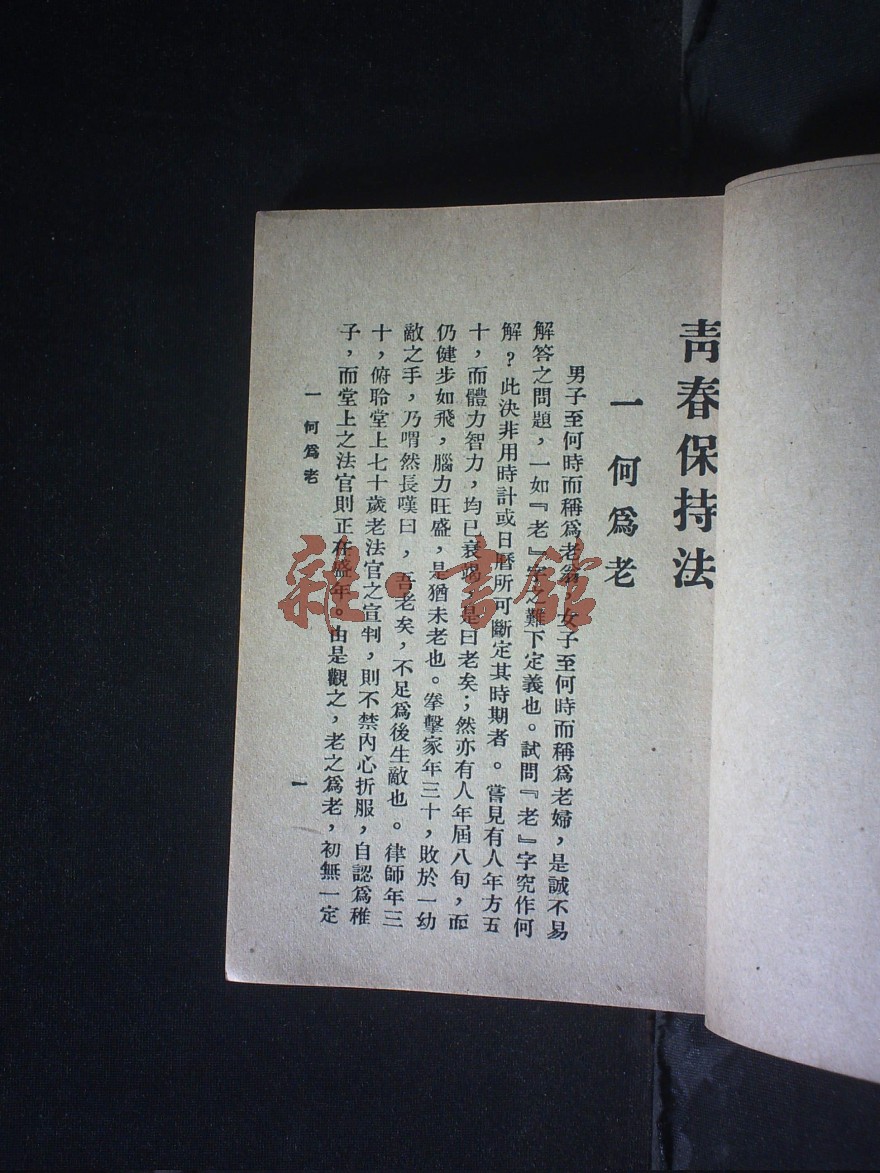 青春保持法
一 何爲老
男子至何時而稱爲老翁，女子至何時而稱爲老婦，是誠不易
解答之問題，一如『老』字之難下定義也。試問『老』字究作何
解？此決非用時計或日曆所可斷定其時期者。嘗見有人年方五
十，而體力智力，均已衰竭，是曰老矣；然亦有人年屆八旬，而
仍健步如飛，腦力旺盛，是猶未老也。拳擊家年三十，敗於一幼
敵之手，乃喟然長嘆曰，吾老矣，不足爲後生敵也。律師年三
十，俯聆堂上七十歲老法官之宣判，則不禁內心折服，自認爲稚
子，而堂上之法官則正在盛年。由是觀之，老之爲老，初無一定
一 何爲老
一
雜·書館